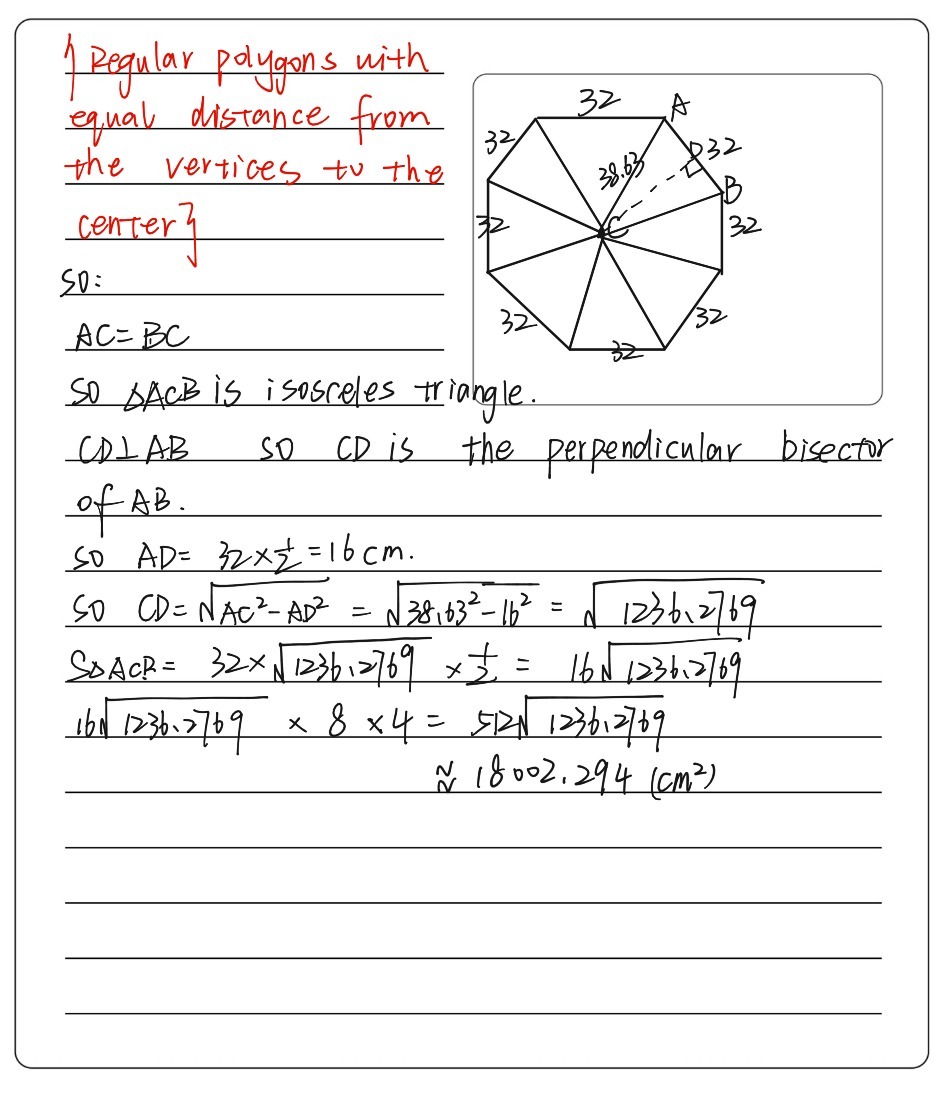 {Regular polygons with
equal distance from
the vertices to the
center}
so:
AC=BC
so △ACB is isosceles triangle.
CD⊥AB so CD is the perpendicular bisector
of AB.
so AD= 32×½=16cm.
so CD=√AC²-AD² = √38.63²-16² = √1236.2769
S△ACB= 32×√1236.2769 ×½= 16√1236.2769
16√1236.2769 × 8 ×4= 512√1236.2769
≈ 18002.294 (cm²)
32
A
32
38.63
D
32
B
C
32
32
32
32
32